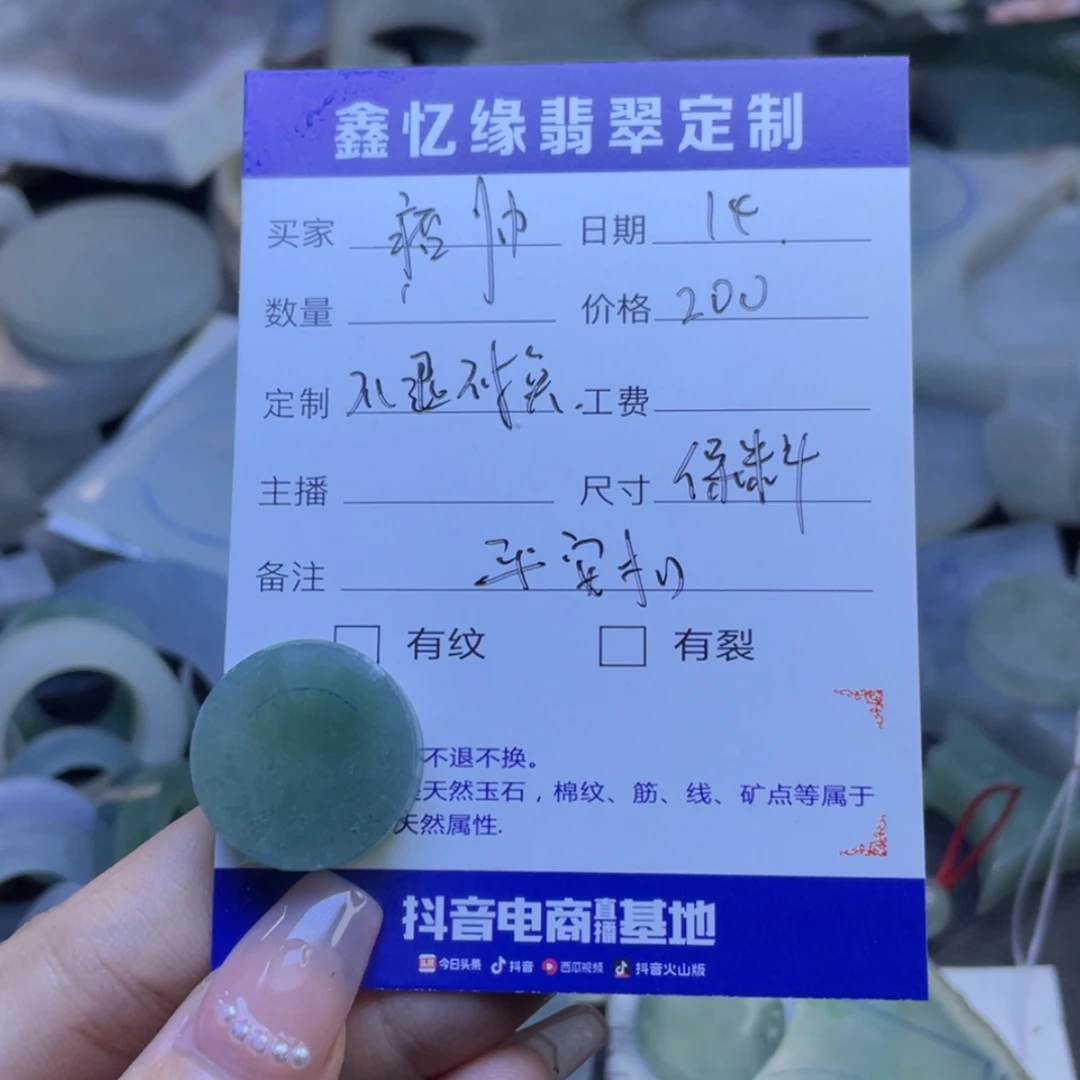 鑫忆缘翡翠定制
买家 痞帅 日期 14.
数量 价格 200
定制 不退不换. 工费
主播 尺寸 保料
备注 平安扣
有纹 有裂
不退不换。
天然玉石，棉纹、筋、线、矿点等属于
天然属性.
抖音电商直播基地
今日头条 抖音 西瓜视频 抖音火山版